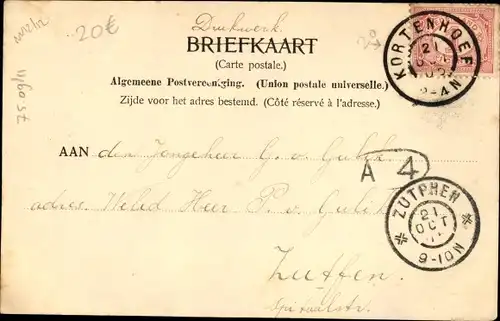 20€
Drukwerk.
BRIEFKAART
(Carte postale.)
Algemeene Postvereeniging. (Union postale universelle.)
Zijde voor het adres bestemd. (Côté réservé à l'adresse.)
KORTENHOEF
21
OCT
8-4N
AAN den Jongeheer G. v. Gulik
A 4
adres. WelEd Heer P. v. Gulik
ZUTPHEN
21
OCT
9-10N
Zutfen.